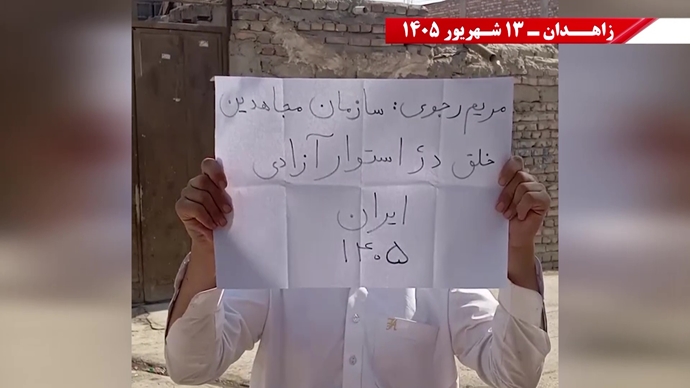 زاهدان ـ ۱۳ شهریور ۱۴۰۵
مریم رجوی: سازمان مجاهدین
خلق دژ استوار آزادی
ایران
۱۴۰۵